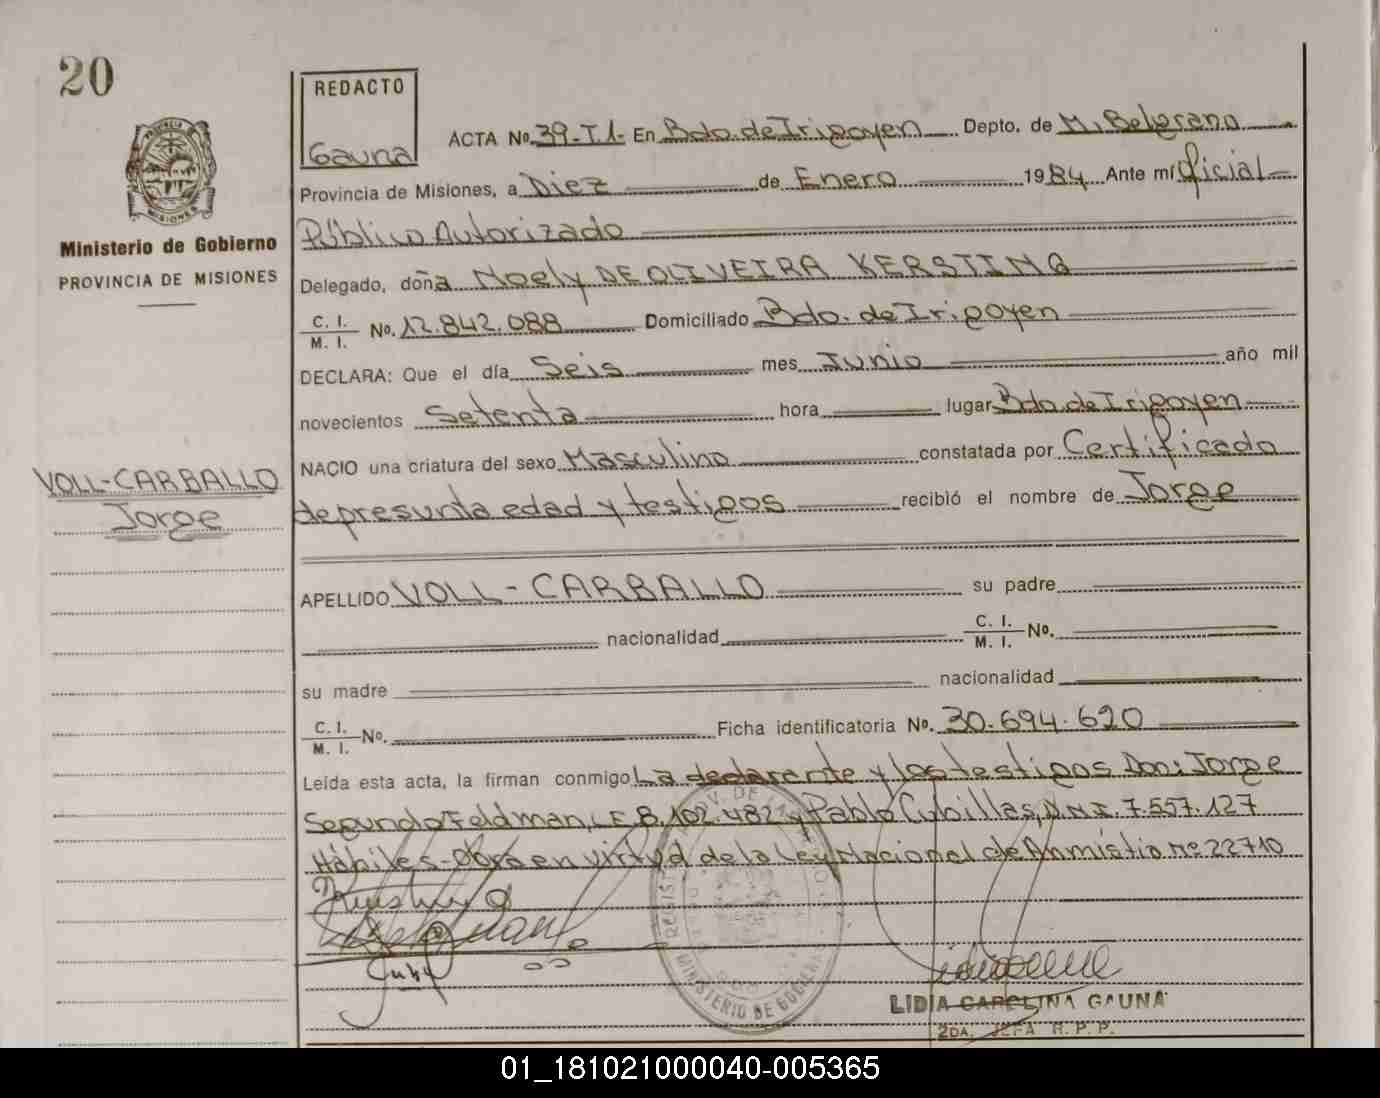 20
REDACTO
Gauna
PROVINCIA DE
MISIONES
Ministerio de Gobierno
PROVINCIA DE MISIONES
VOLL-CARBALLO
Jorge
ACTA No. 39-T.1- En Bdo. de Irigoyen Depto. de M. Belgrano
Provincia de Misiones, a Diez de Enero 1984 Ante mí Oficial
Público Autorizado
Delegado, doña Noely DE OLIVEIRA KERSTING
C. I.
M. I. No. 12.842.088 Domiciliado Bdo. de Irigoyen
DECLARA: Que el día Seis mes Junio año mil
novecientos Setenta hora lugar Bdo. de Irigoyen
NACIO una criatura del sexo Masculino constatada por Certificado
de presunta edad y testigos recibió el nombre de Jorge
APELLIDO VOLL-CARBALLO su padre
nacionalidad C. I. M. I. No.
su madre nacionalidad
C. I.
M. I. No. Ficha identificatoria No. 30.694.620
Leída esta acta, la firman conmigo La declarante y los testigos Don: Jorge
Segundo Feldman, L.E 8.102.482 y Pablo Cubillas, D.N.I. 7.557.127
Hábiles-Obra en virtud de la Ley Nacional de Anmistia nº 22710
MINISTERIO DE GOBIERNO
LIDIA CAROLINA GAUNA
2DA. JEFA R. P. P.
01_181021000040-005365